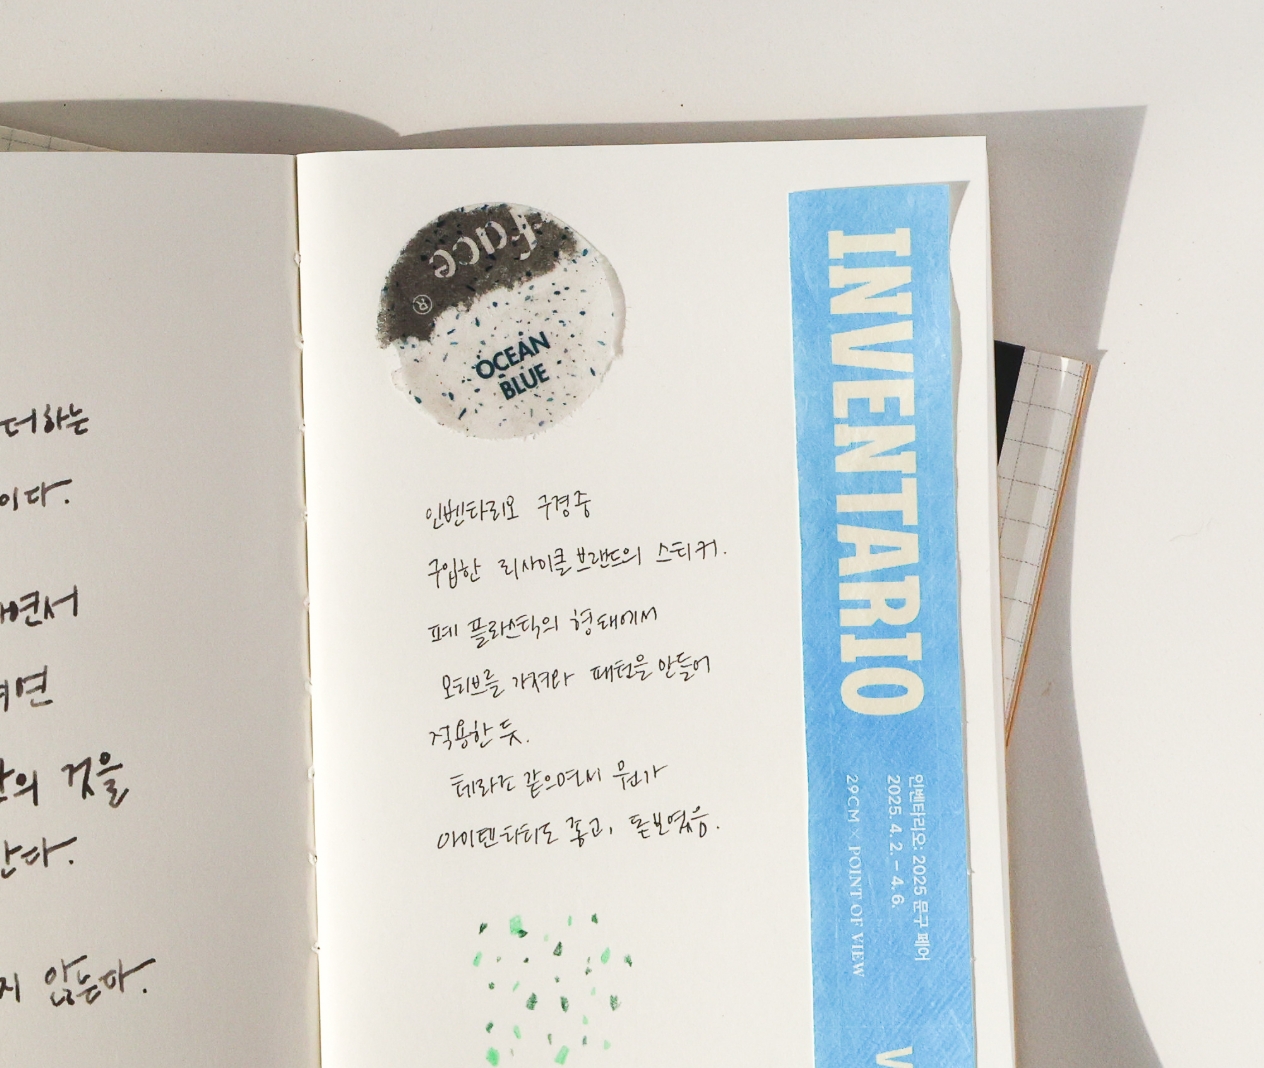 더하는
이다.
면서
면
의 것을
간다.
지 않는다.
face
®
OCEAN
BLUE
인벤타리오 구경중
구입한 리사이클 브랜드의 스티커.
폐 플라스틱의 형태에서
모티브를 가져와 패턴을 만들어
적용한 듯.
테라조 같으면서 뭔가
아이덴티티도 좋고, 돋보였음.
INVENTARIO
인벤타리오: 2025 문구 페어
2025. 4. 2. – 4. 6.
29CM × POINT OF VIEW